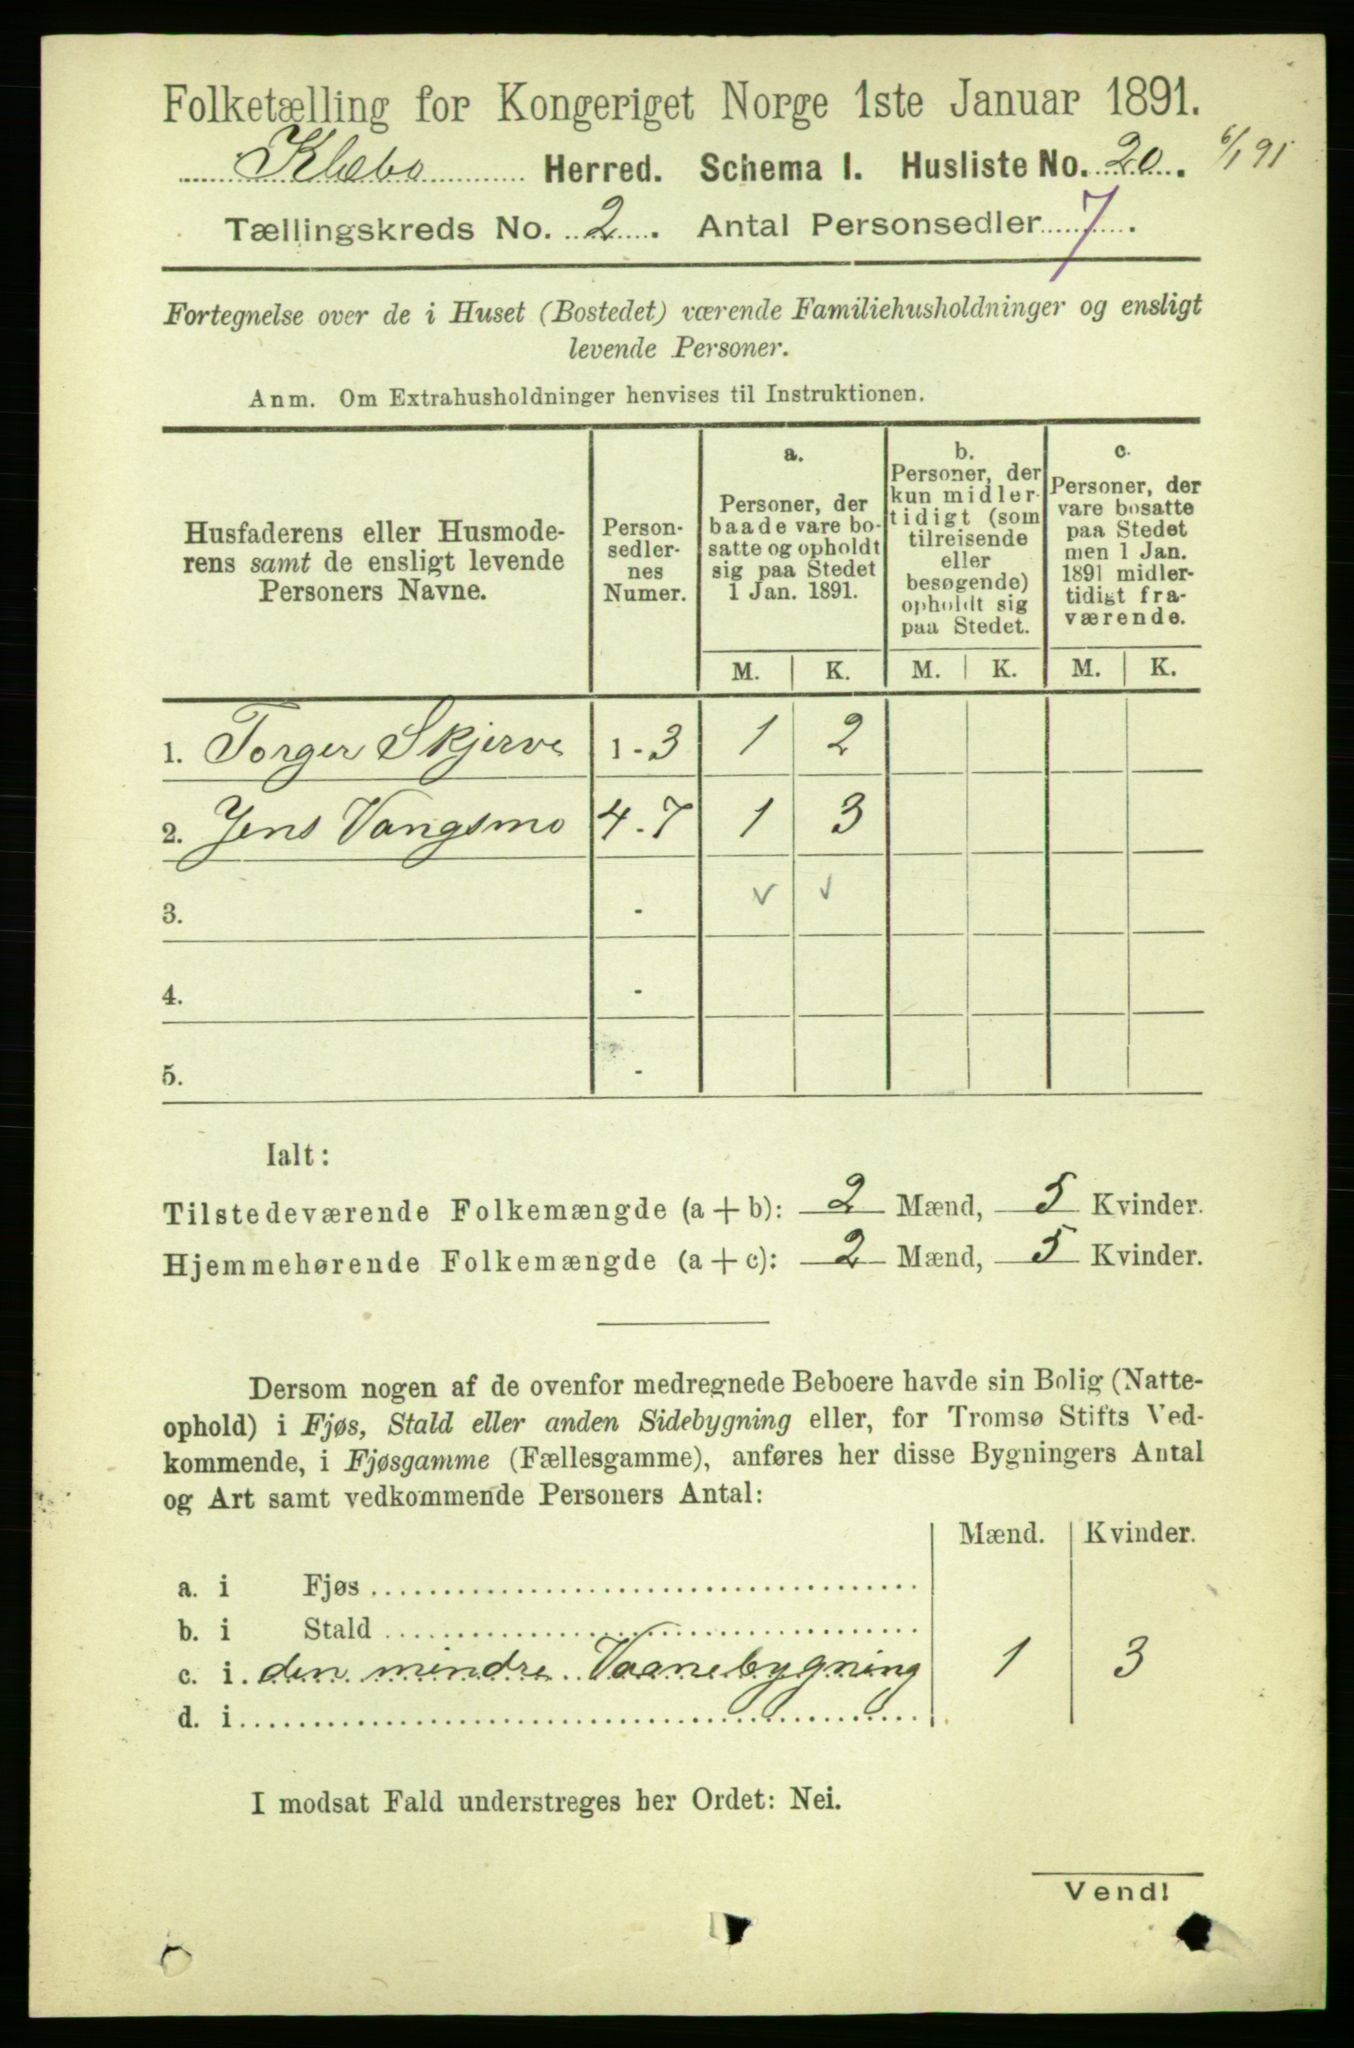 Folketælling for Kongeriget Norge 1ste Januar 1891.
Klæbo Herred. Schema I. Husliste No. 20. 6/1 91
Tællingskreds No. 2. Antal Personsedler 7.
Fortegnelse over de i Huset (Bostedet) værende Familiehusholdninger og ensligt
levende Personer.
Anm. Om Extrahusholdninger henvises til Instruktionen.
Husfaderens eller Husmode-
rens samt de ensligt levende
Personers Navne.
Person-
sedler-
nes
Numer.
a.
Personer, der
baade vare bo-
satte og opholdt
sig paa Stedet
1 Jan. 1891.
b.
Personer, der
kun midler-
tidigt (som
tilreisende
eller
besøgende)
opholdt sig
paa Stedet.
c.
Personer, der
vare bosatte
paa Stedet
men 1 Jan.
1891 midler-
tidigt fra-
værende.
M. K. M. K. M. K.
1. Torger Skjerve 1-3 1 2
2. Jens Vangsmo 4-7 1 3
3. -
4. -
5. -
Ialt:
Tilstedeværende Folkemængde (a + b): 2 Mænd, 5 Kvinder.
Hjemmehørende Folkemængde (a + c): 2 Mænd, 5 Kvinder.
Dersom nogen af de ovenfor medregnede Beboere havde sin Bolig (Natte-
ophold) i Fjøs, Stald eller anden Sidebygning eller, for Tromsø Stifts Ved-
kommende, i Fjøsgamme (Fællesgamme), anføres her disse Bygningers Antal
og Art samt vedkommende Personers Antal:
Mænd. Kvinder.
a. i Fjøs
b. i Stald
c. i den mindre Vaanebygning 1 3
d. i
I modsat Fald understreges her Ordet: Nei.
Vend!